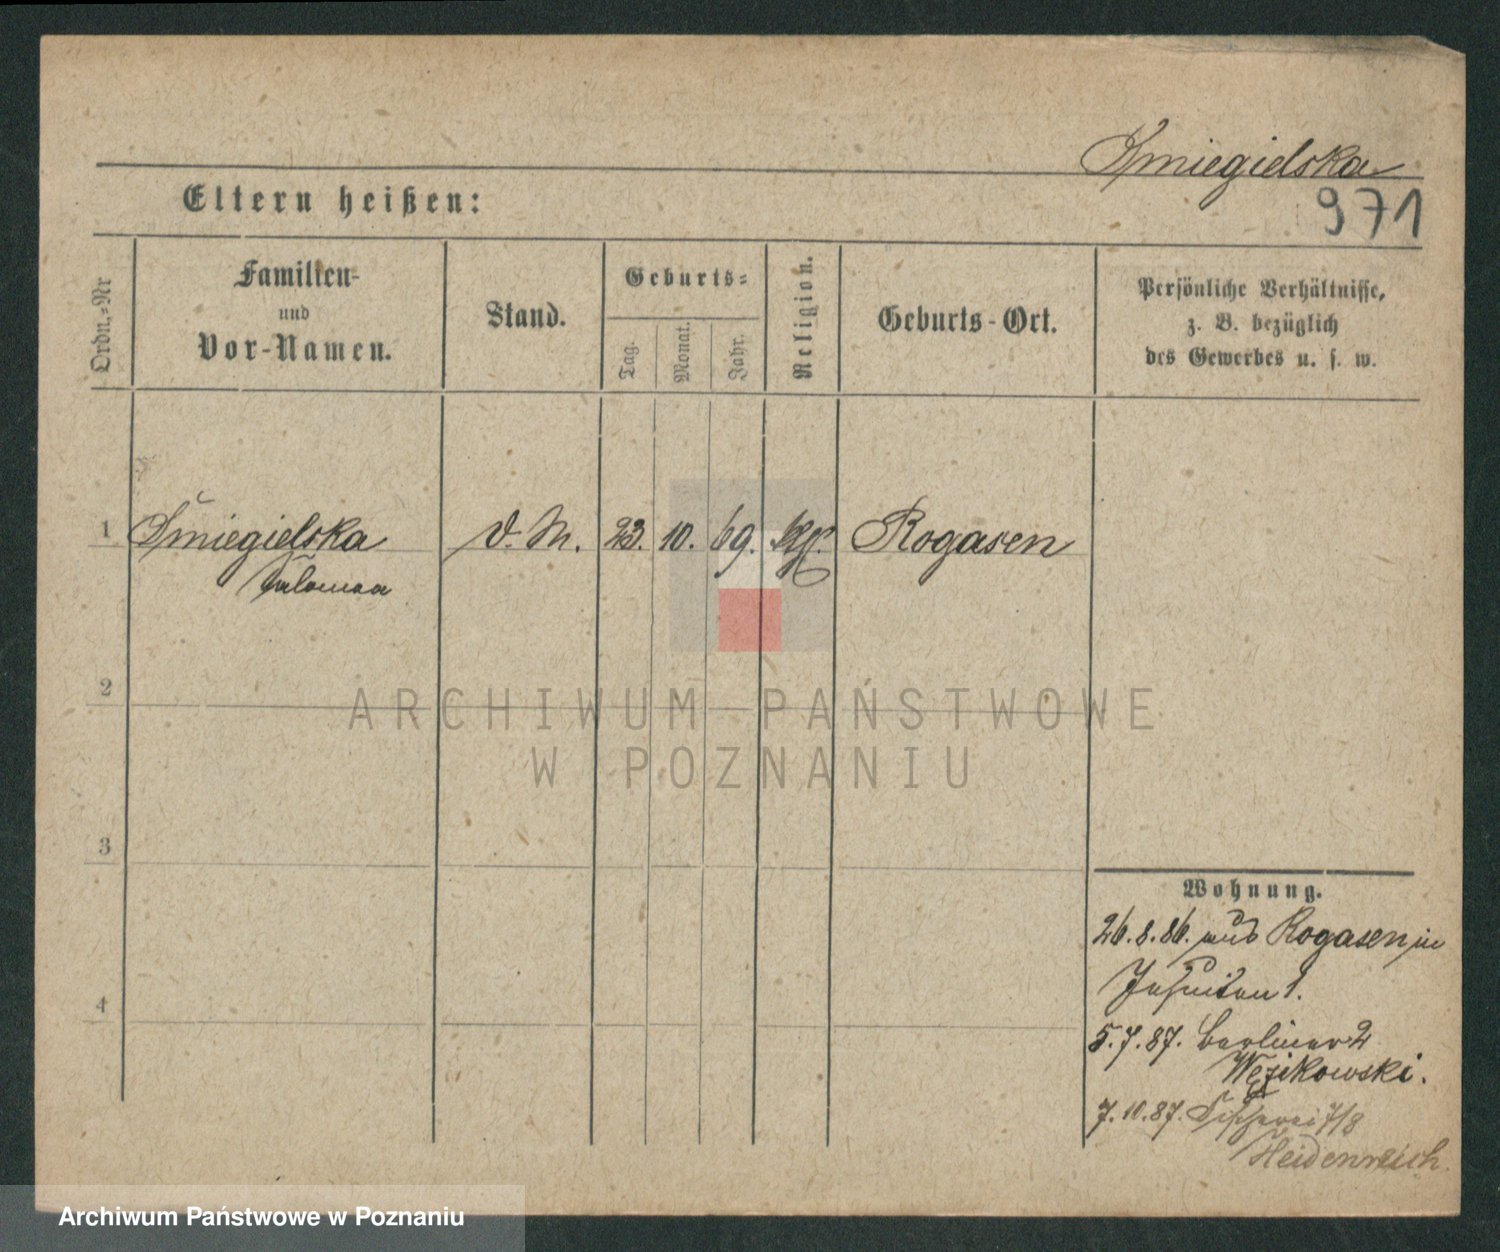 Smiegielska
971
Eltern heißen:
Ordn.-Nr
Familien-
und
Vor-Namen.
Stand.
Geburts-
Tag.
Monat.
Jahr.
Religion.
Geburts-Ort.
Persönliche Verhältnisse,
z. B. bezüglich
des Gewerbes u. s. w.
1
Śmiegielska
Salomea
D. M.
23.
10.
69.
Rogasen
2
ARCHIWUM PAŃSTWOWE
W POZNANIU
3
Wohnung.
26.8.86. aus Rogasen in
Jesuiten 1.
4
5.7.87. Berliner 2
Wężikowski.
7.10.87. Fischerei 7/8
Heidenreich.
Archiwum Państwowe w Poznaniu